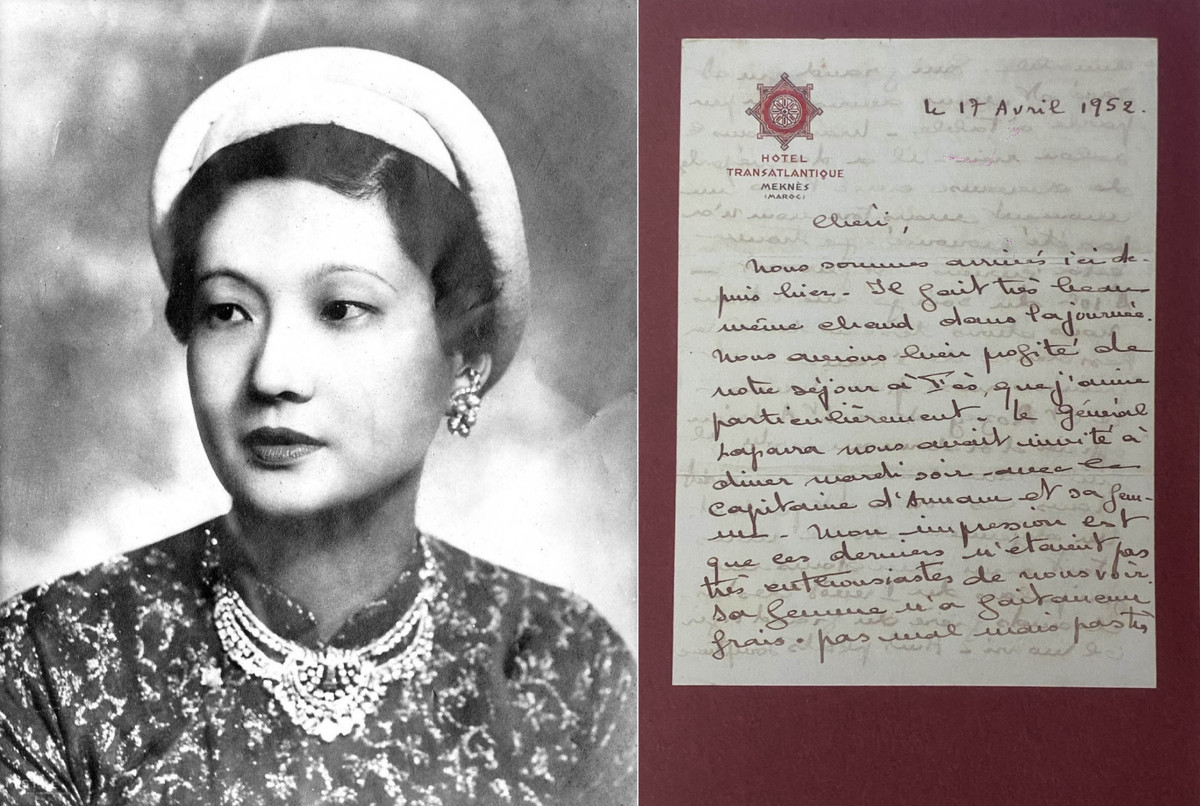 le 17 Avril 1952.
HOTEL
TRANSATLANTIQUE
MEKNÈS
(MAROC)
Chéri,
Nous sommes arrivés ici de-
puis hier - Il fait très beau
même chaud dans la journée.
Nous avions bien profité de
notre séjour à Fès, que j'aime
particulièrement - le Général
Laparra nous avait invité à
diner mardi soir avec le
capitaine d'Annam et sa fem-
me - Mon impression est
que ces derniers n'étaient pas
très enthousiastes de nous voir.
Sa femme n'a fait aucun
frais. pas mal mais pas très